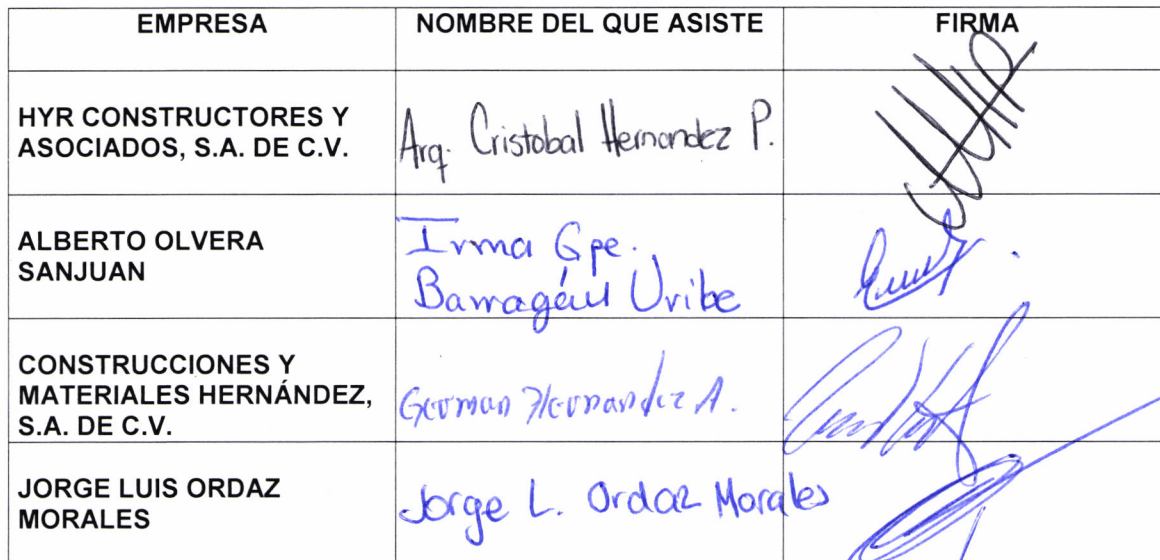 EMPRESA NOMBRE DEL QUE ASISTE FIRMA
HYR CONSTRUCTORES Y
ASOCIADOS, S.A. DE C.V.
Arq. Cristobal Hernandez P.
ALBERTO OLVERA
SANJUAN
Irma Gpe.
Barragán Uribe
CONSTRUCCIONES Y
MATERIALES HERNÁNDEZ,
S.A. DE C.V.
German Hernandez A.
JORGE LUIS ORDAZ
MORALES
Jorge L. Ordaz Morales